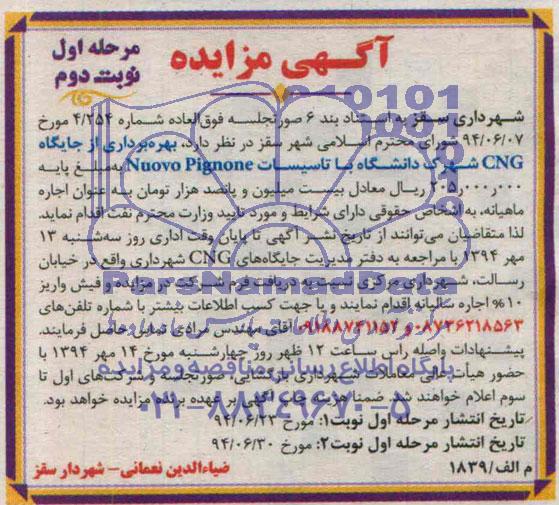 آگهی مزایده
مرحله اول
نوبت دوم
شهرداری سقز به استناد بند ۶ صورتجلسه فوق‌العاده شماره ۴/۲۵۴ مورخ
۹۴/۰۶/۰۷ شورای محترم اسلامی شهر سقز در نظر دارد، بهره‌برداری از جایگاه
CNG شهرک دانشگاه با تاسیسات Nuovo Pignone به مبلغ پایه
۲۰۵٫۰۰۰٫۰۰۰ ریال معادل بیست میلیون و پانصد هزار تومان به عنوان اجاره
ماهیانه، به اشخاص حقوقی دارای شرایط و مورد تایید وزارت محترم نفت اقدام نماید.
لذا متقاضیان می‌توانند از تاریخ نشر آگهی تا پایان وقت اداری روز سه‌شنبه ۱۳
مهر ۱۳۹۴ با مراجعه به دفتر مدیریت جایگاه‌های CNG شهرداری واقع در خیابان
رسالت، شهرداری مرکزی نسبت به دریافت فرم شرکت در مزایده و فیش واریز
۱۰% اجاره سالیانه اقدام نمایند و یا جهت کسب اطلاعات بیشتر با شماره تلفن‌های
۰۸۷۳۶۲۱۸۵۶۳ و ۰۹۱۸۸۷۴۱۱۵۲ آقای مهندس مرادی تماس حاصل فرمایند.
پیشنهادات واصله راس ساعت ۱۲ ظهر روز چهارشنبه مورخ ۱۴ مهر ۱۳۹۴ با
حضور هیأت عالی معاملات شهرداری بازگشایی، صورتجلسه و شرکت‌های اول تا
سوم اعلام خواهند شد. ضمنا هزینه چاپ آگهی بر عهده برنده مزایده خواهد بود.
تاریخ انتشار مرحله اول نوبت۱: مورخ ۹۴/۰۶/۲۳
تاریخ انتشار مرحله اول نوبت۲: مورخ ۹۴/۰۶/۳۰
م الف/۱۸۳۹
ضیاءالدین نعمانی– شهردار سقز
ParsNamadData
پایگاه اطلاع رسانی مناقصه و مزایده
۰۲۱-۸۸۳۴۹۶۷۰-۵